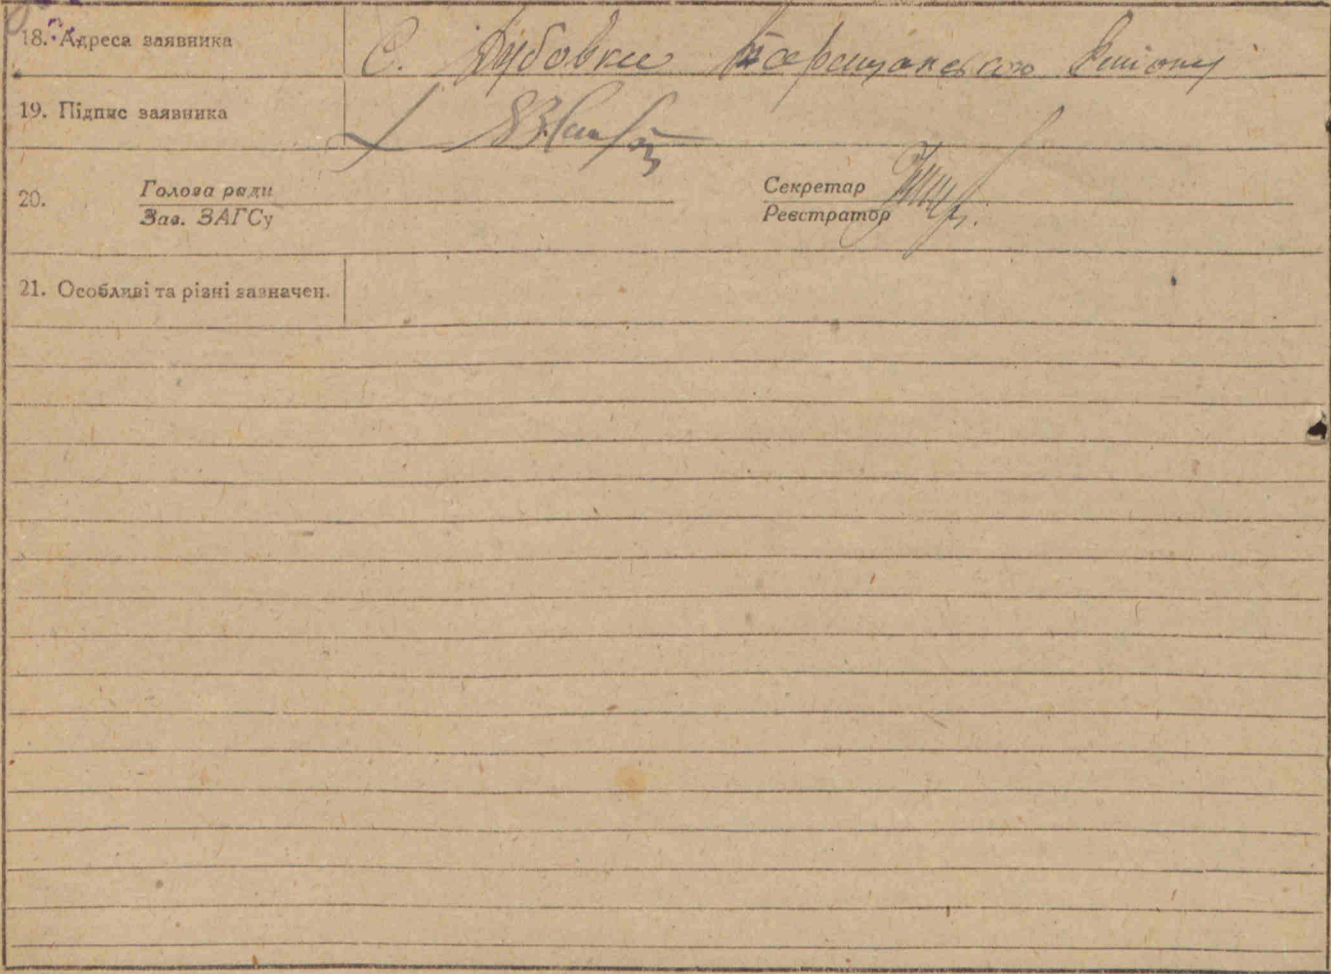 18. Адреса заявника С. Дубовка Таращанського району
19. Підпис заявника
20. Голова ради Секретар
Зав. ЗАГСу Реєстратор
21. Особливі та різні зазначен.